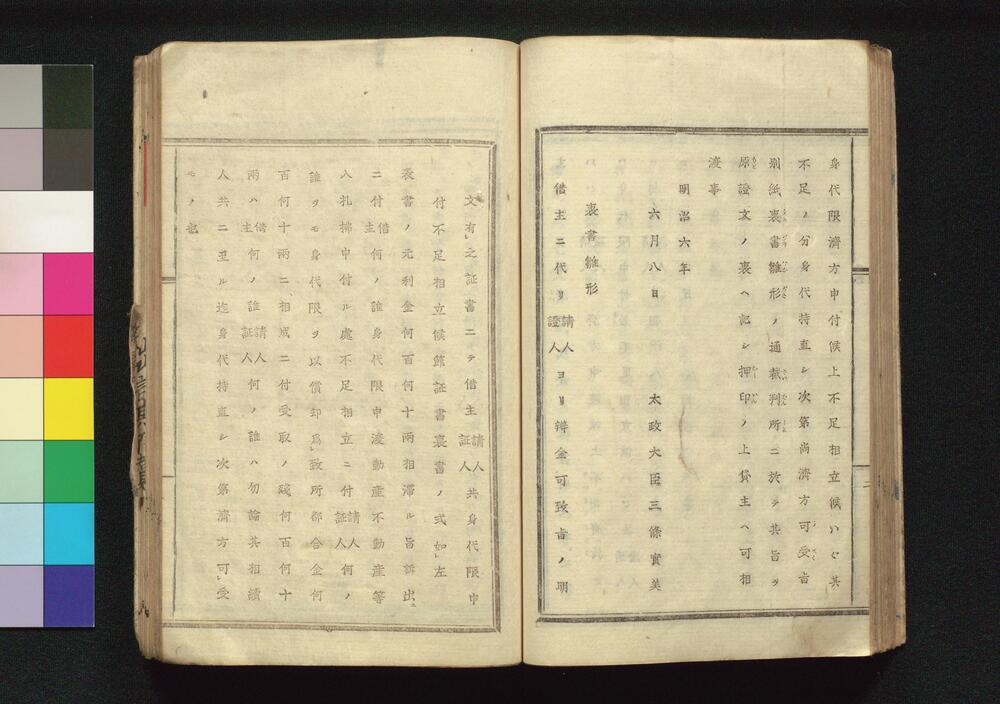 身代限濟方申付候上不足相立候ハヾ其
不足ノ分身代持直シ次第尚濟方可受旨
別紙裏書雛形ノ通裁判所ニ於テ其旨ヲ
原證文ノ裏ヘ記シ押印ノ上貸主ヘ可相
渡事
明治六年
六月八日 太政大臣三條實美
裏書雛形
主借主ニ代リ請人證人ヨリ辨金可致旨ノ明
文有之証書ニテ借主請人証人共身代限申
付不足相立候節証書裏書ノ式如左
表書ノ元利金何百何十兩相滯ル旨訴出
ニ付借主何ノ誰身代限申渡動產不動產等
入札拂申付ル處不足相立ニ付請人証人何ノ
誰ヲモ身代限ヲ以償却爲致所都合金何
百何十兩ニ相成ニ付受取ノ殘何百何十
兩ハ借主何ノ誰請人証人何ノ誰ハ勿論其相續
人共ニ至ル迄身代持直シ次第濟方可受
モノ也